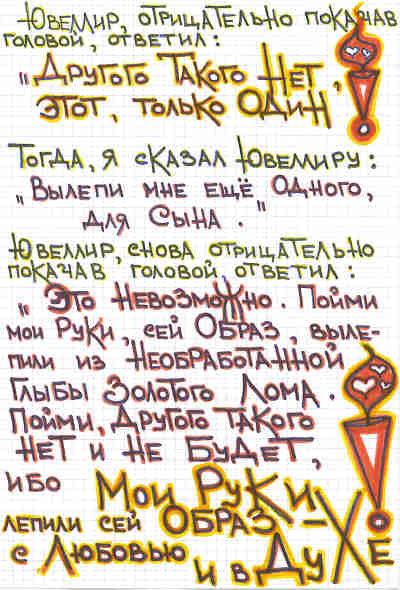 Ювеллир, отрицательно покачав
головой, ответил:
„Другого Такого Нет,
Этот, только Один
Тогда, я сказал Ювеллиру:
„Вылепи мне ещё Одного,
для Сына."
Ювеллир, снова отрицательно
покачав головой, ответил:
„Это Невозможно. Пойми
мои Руки, сей Образ, выле-
пили из Необработанной
Глыбы Золотого Лома.
Пойми, Другого Такого
Нет и Не Будет,
ибо Мои Руки
лепили сей Образ –
с Любовью и в Духе